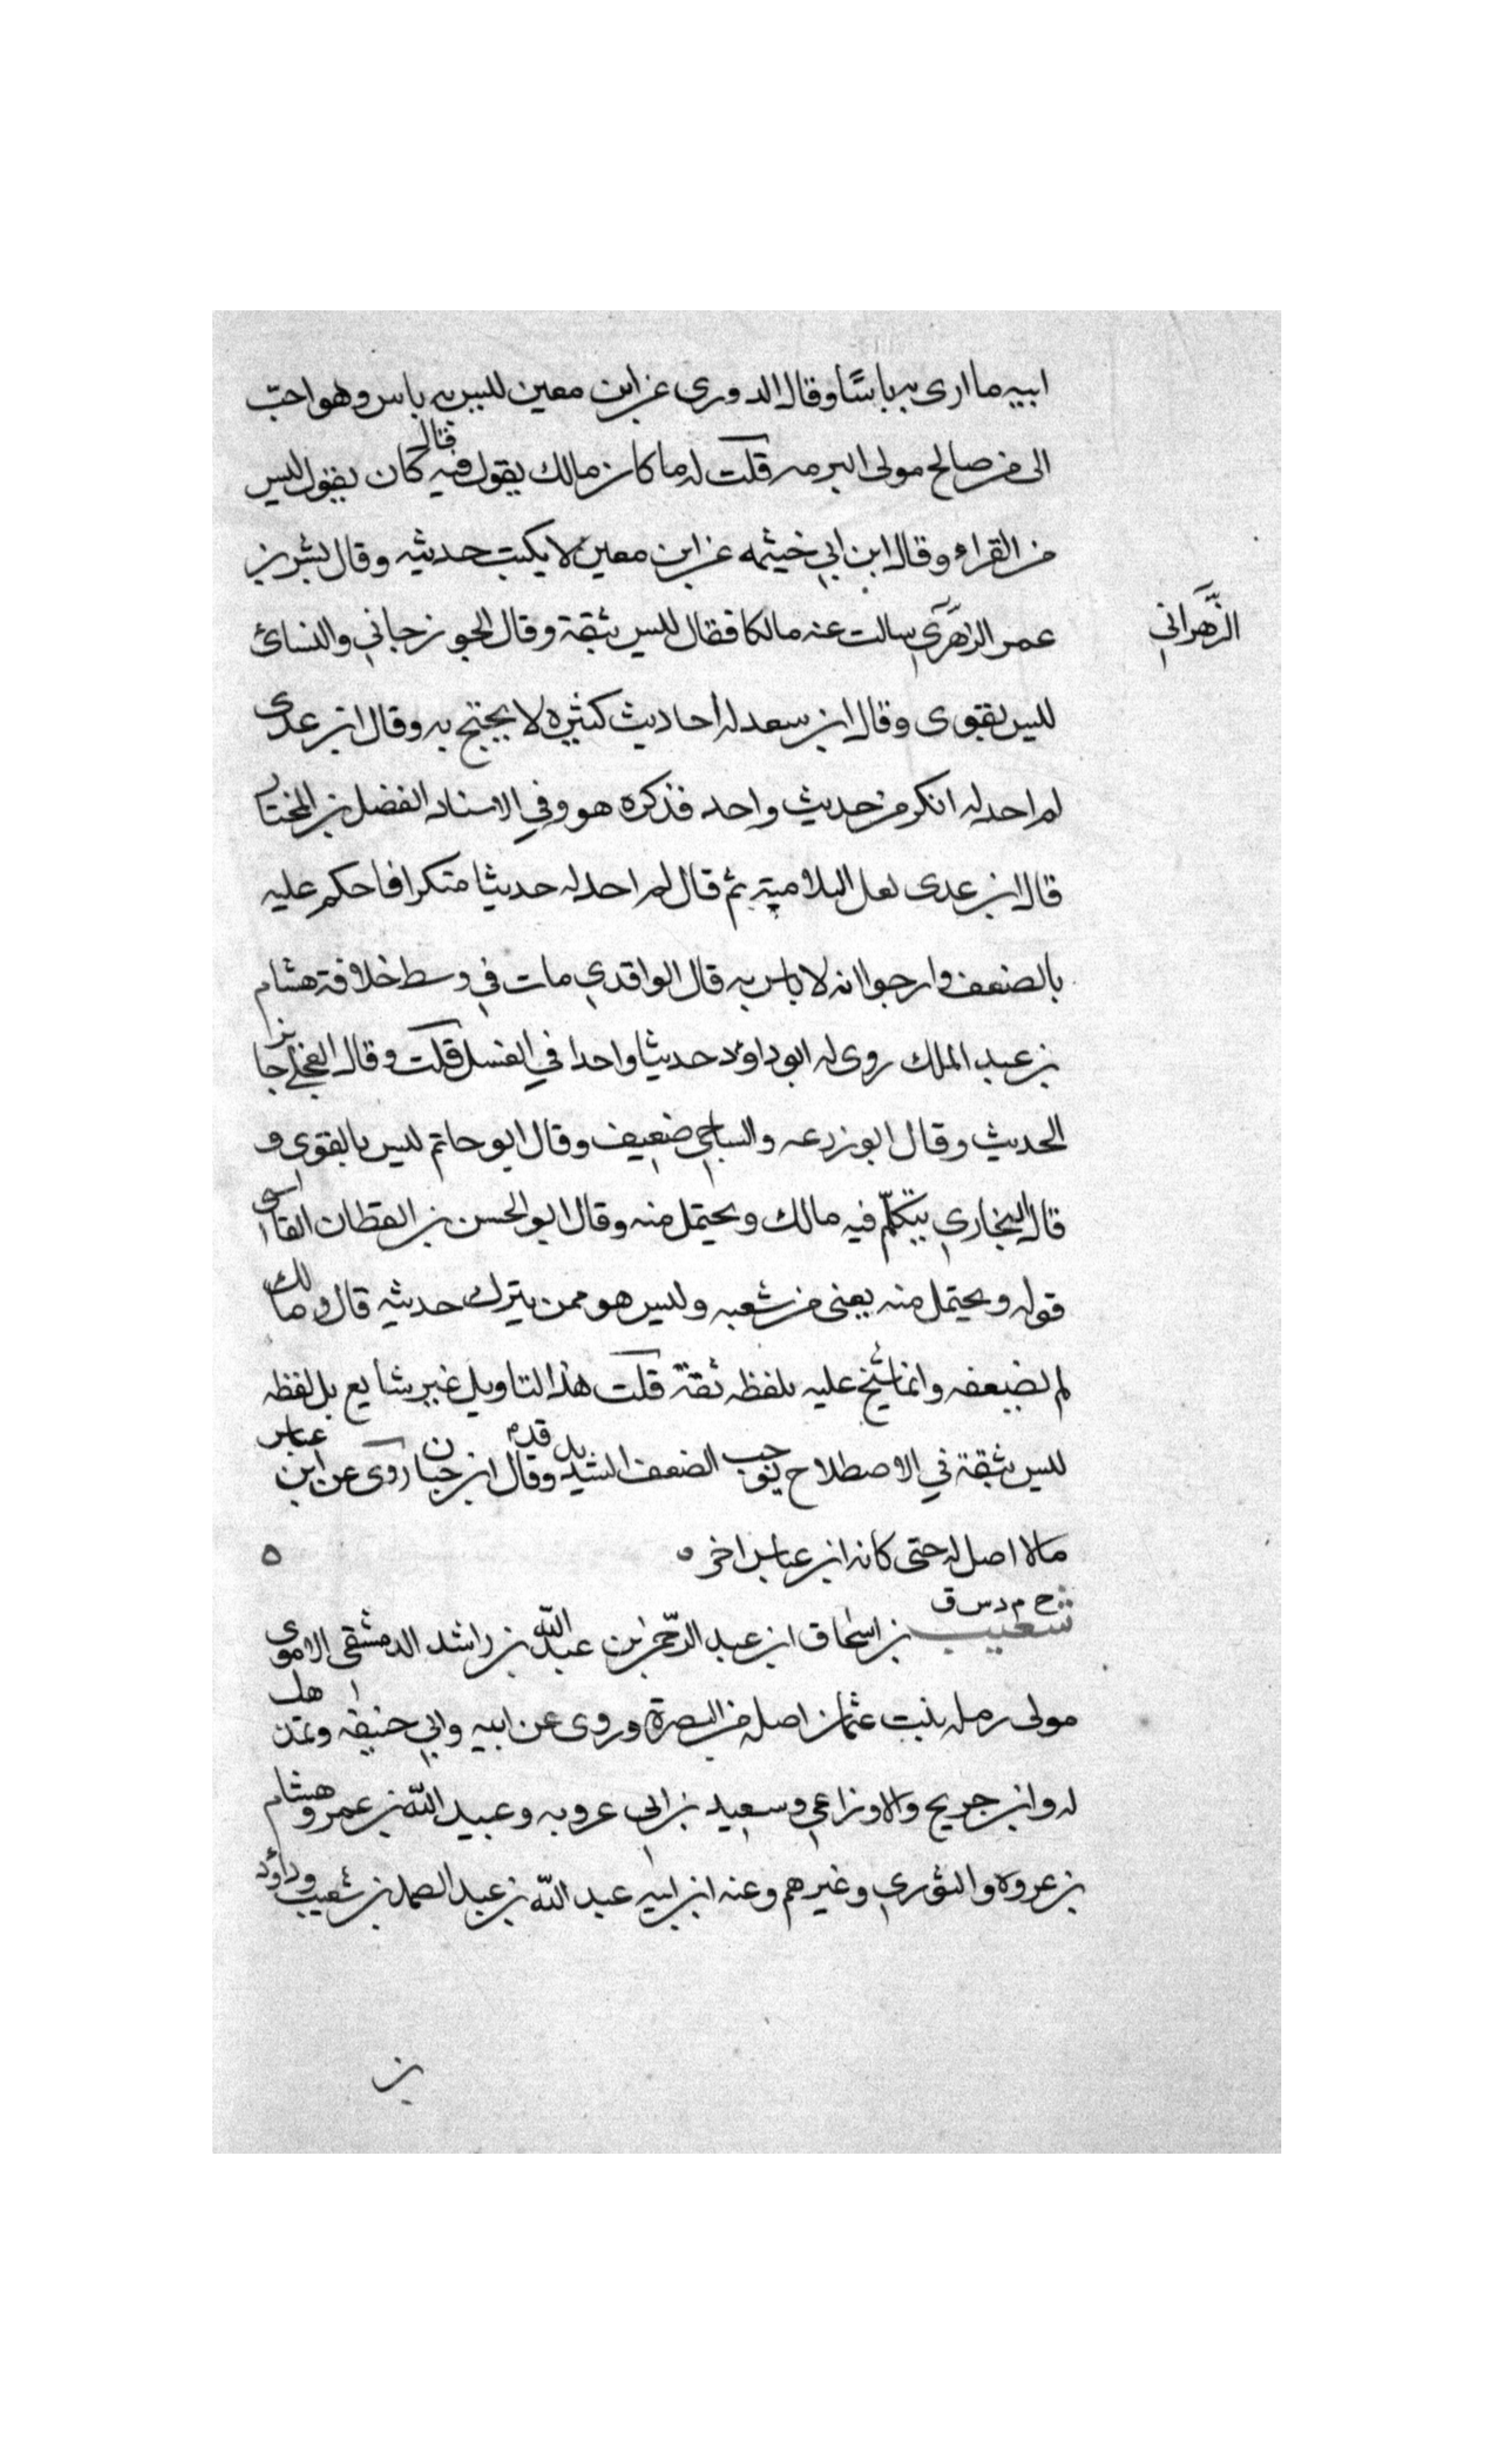 ابيه ما ارى به باسًا وقال الدوري عن ابن معين ليس به باس وهو احبّ
الى من صالح مولى البرمه قلت له ما كان مالك يقول فيه قال كان يقول ليس
من القراء وقال ابن ابي خيثمه عن ابن معين لا يكتب حديثه وقال بشر بن
عمر الزهري سالت عنه مالكا فقال ليس بثقة وقال الجوزجاني والنسائ
الزَّهراني
ليس بقوى وقال ابن سعد له احاديث كثيره لا يحتج به وقال ابن عدى
لم احد له انكر من حديث واحد فذكره هو وفي الاسناد الفضل بن المختار
قال ابن عدى لعل البلا ميته ثم قال لم احد له حديثا منكرا فاحكم عليه
بالضعف وارجوا انه لا باس به قال الواقدي مات في وسط خلافة هشام
بن عبد الملك روى له ابو داود حديثا واحدا في الغسل قلت وقال العجلي جايز
الحديث وقال ابو زرعه والساجي ضعيف وقال ابو حاتم ليس بالقوى و
قال البخاري يتكلّم فيه مالك ويحتمل منه وقال ابو الحسن بن القطان الفاسى
قوله ويحتمل منه يعنى من شعبه وليس هو ممن يترك حديثه قال ومالك
لم يضعفه وانما شخ عليه بلفظه ثقة قلت هذا التاويل غير شايع بل لفظه
ليس بثقة في الاصطلاح يوجب الضعف الشديد وقال ابن حبان روى عن ابن عباس
مالا اصل له حتى كانه ابن عباس اخر ه
خ م د س ق
شعيب بن اسحاق ابن عبد الرّحمن بن عبد اللّه بن راشد الدمشقى الاموى
مولى رمله بنت عثمان اصله من البصرة وروى عن ابيه وابي حنيفه وتمذهب
له وابن جريج والاوزاعي وسعيد بن ابى عروبه وعبيد اللّه بن عمر وهشام
بن عروه والثوري وغيرهم وعنه ابن ابنه عبد اللّه بن عبد الصمد بن شعيب وداؤد
بن